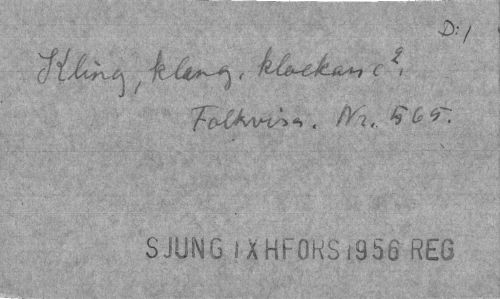 D:1
Kling, klang, klockan c².
Folkvisa. Nr. 565.
SJUNG I XHFORS 1956 REG